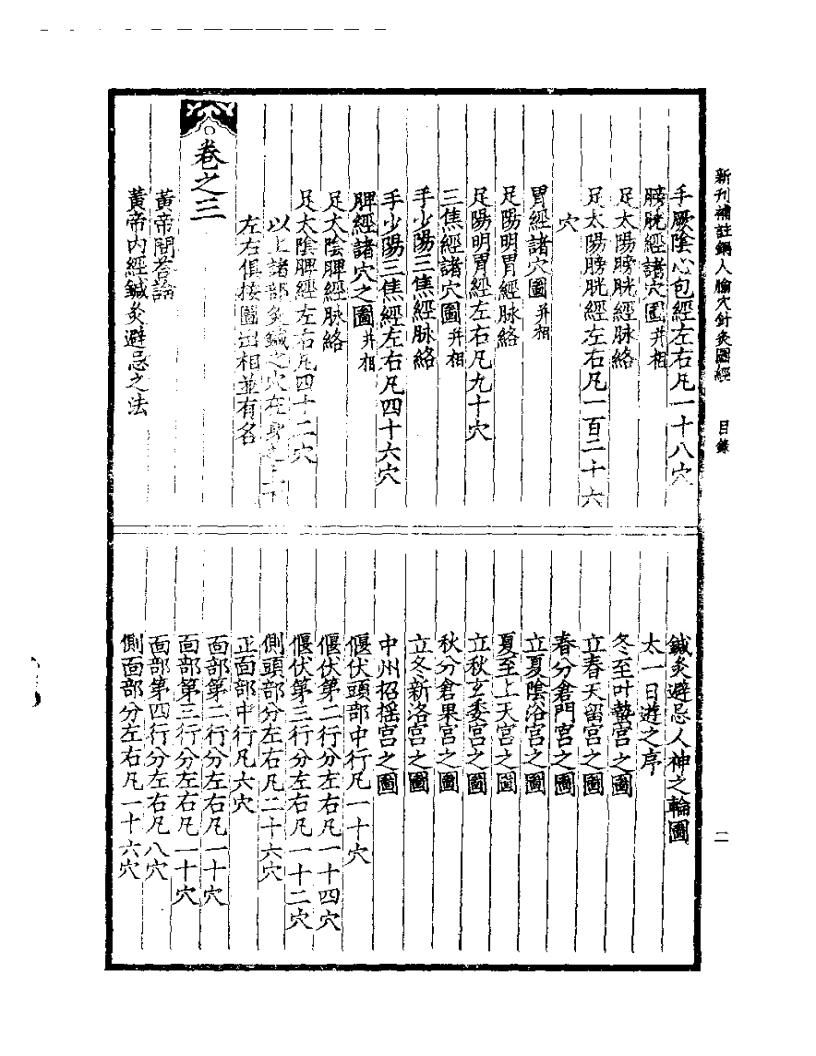 新刊補註銅人腧穴針灸圖經 目錄
手厥陰心包經左右凡一十八穴
膀胱經諸穴圖并相
足太陽膀胱經脉絡
足太陽膀胱經左右凡一百二十六
穴
胃經諸穴圖并相
足陽明胃經脉絡
足陽明胃經左右凡九十穴
三焦經諸穴圖并相
手少陽三焦經脉絡
手少陽三焦經左右凡四十六穴
脾經諸穴之圖并相
足太陰脾經脉絡
足太陰脾經左右凡四十二穴
以上諸部灸鍼之穴在
左右俱按圖 相並有名
卷之三
黃帝問答論
黃帝內經鍼灸避忌之法
鍼灸避忌人神之輪圖
太一日遊之序
冬至叶蟄宮之圖
立春天留宮之圖
春分倉門宮之圖
立夏陰洛宮之圖
夏至上天宮之圖
立秋玄委宮之圖
秋分倉果宮之圖
立冬新洛宮之圖
中州招摇宮之圖
偃伏頭部中行凡一十穴
偃伏第二行分左右凡一十四穴
偃伏第三行分左右凡一十二穴
側頭部分左右凡二十六穴
正面部中行凡六穴
面部第二行分左右凡一十穴
面部第三行分左右凡一十穴
面部第四行分左右凡八穴
側面部分左右凡一十六穴
二